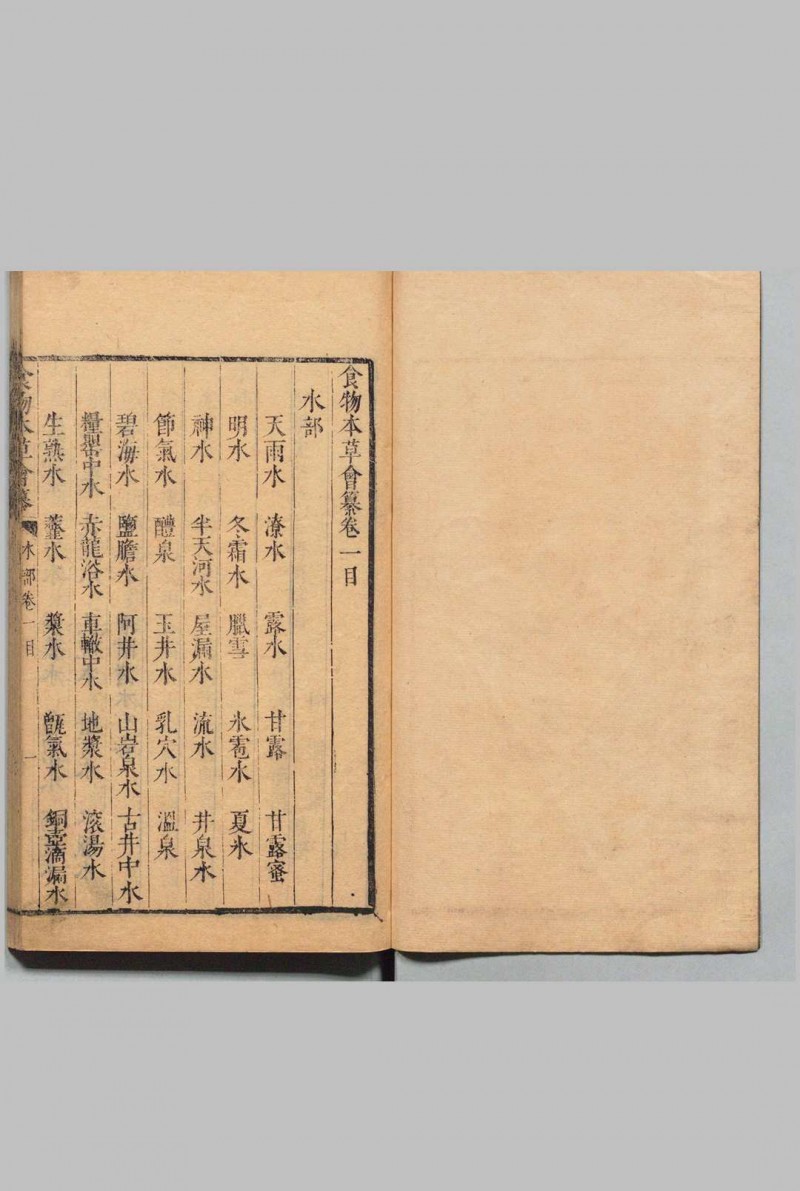 食物本草會纂卷一目
水部
天雨水 潦水 露水 甘露 甘露蜜
明水 冬霜水 臘雪 氷雹水 夏氷
神水 半天河水 屋漏水 流水 井泉水
節氣水 醴泉 玉井水 乳穴水 溫泉
碧海水 鹽膽水 阿井水 山岩泉水 古井中水
糧罌中水 赤龍浴水 車轍中水 地漿水 滚湯水
生熟水 虀水 漿水 甑氣水 銅壺滴漏水
食物本草會纂 水部卷一目 一